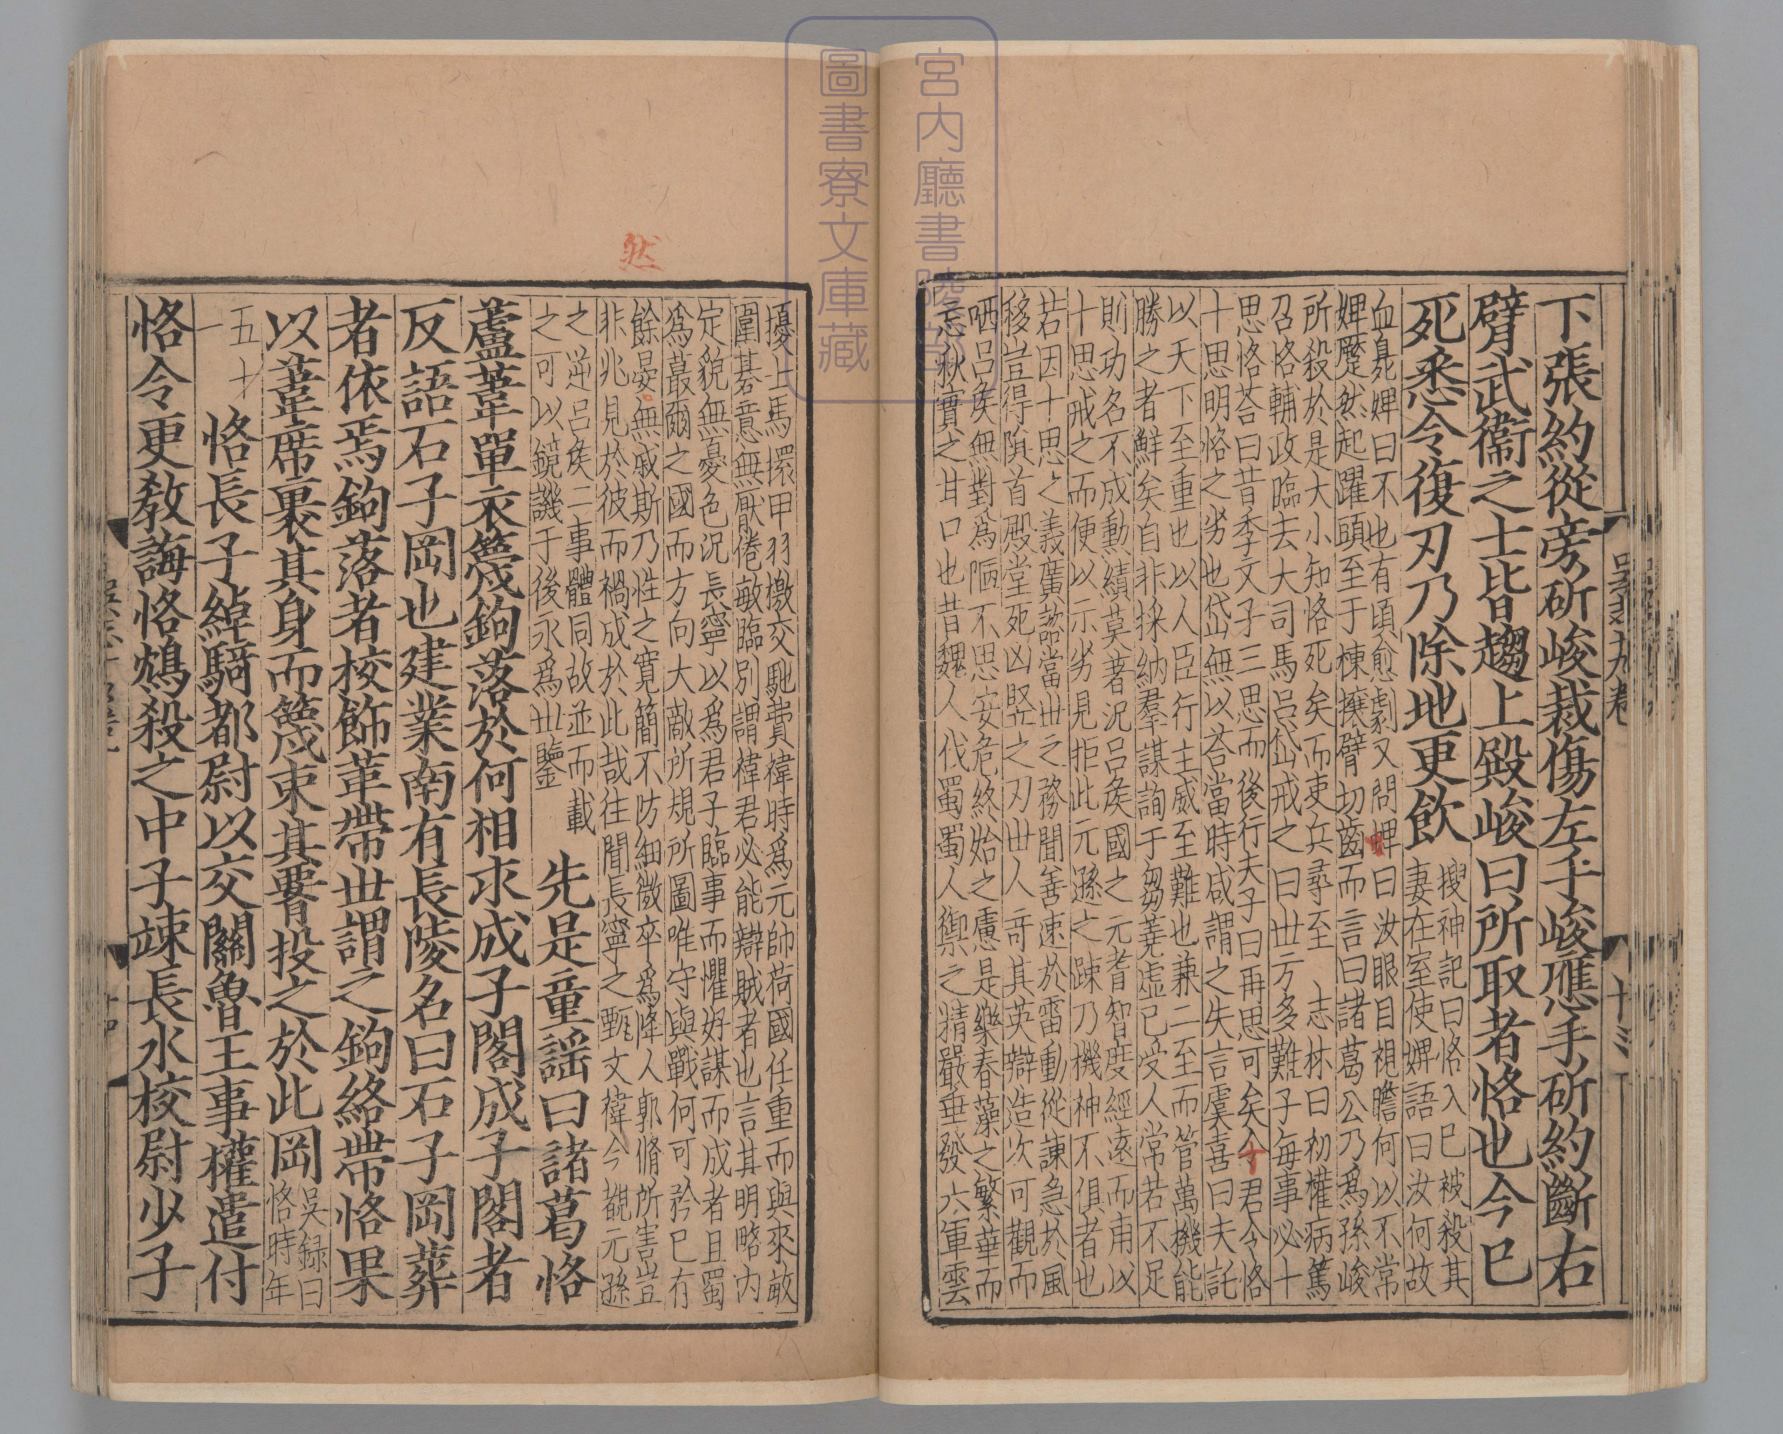 下張約從旁斫峻裁傷左手峻應手斫約斷右
臂武衞之士皆趨上殿峻曰所取者恪也今巳
死悉令復刃乃除地更飲
搜神記曰恪入巳被殺其
妻在室使婢語曰汝何故
血臰婢曰不也有頃愈劇又問婢曰汝眼目視瞻何以不常
婢蹷然起躍頭至于棟攘臂切齒而言曰諸葛公乃爲孫峻
所殺於是大小知恪死矣而吏兵尋至　志林曰初權病篤
召恪輔政臨去大司馬呂岱戒之曰世方多難子每事必十
思恪荅曰昔季文子三思而後行夫子曰再思可矣今君令恪
十思明恪之劣也岱無以荅當時咸謂之失言虞喜曰夫託
以天下至重也以人臣行主威至難也兼二至而管萬機能
勝之者鮮矣自非採納羣謀詢于芻蕘虚已受人常若不足
則功名不成勳績莫著況呂矦國之元耆智度經遠而甫以
十思戒之而便以示劣見拒此元遜之踈乃機神不俱者也
若因十思之義廣諮當世之務聞善速於雷動從諫急於風
移豈得隕首殿堂死凶竪之刃世人奇其英辯造次可觀而
哂呂矦無對爲陋不思安危終始之慮是樂春藻之繁華而
忘秋實之甘口也昔魏人伐蜀蜀人禦之精嚴垂發六軍雲
吳志九卷
十三
擾士馬擐甲羽檄交馳費禕時爲元帥荷國任重而與來敏
圍碁意無厭倦敏臨別謂禕君必能辯賊者也言其明略内
定貌無憂色況長寧以爲君子臨事而懼好謀而成者且蜀
爲蕞爾之國而方向大敵所規所圖唯守與戰何可矜巳有
餘晏無戚斯乃性之寛簡不防細微卒爲降人郭脩所害豈
非兆見於彼而禍成於此哉往聞長寧之甄文禕今覩元遜
之逆呂矦二事體同故並而載
之可以鏡譏于後永爲世鑒
先是童謡曰諸葛恪
蘆葦單衣篾鉤落於何相求成子閤成子閤者
反語石子岡也建業南有長陵名曰石子岡葬
者依焉鉤落者校飾革帶世謂之鉤絡帶恪果
以葦席裹其身而篾束其要投之於此岡
吳録曰
恪時年
五十
一
恪長子綽騎都尉以交關魯王事權遣付
恪令更敎誨恪鴆殺之中子竦長水校尉少子
然
宮内廳書陵部
圖書寮文庫藏